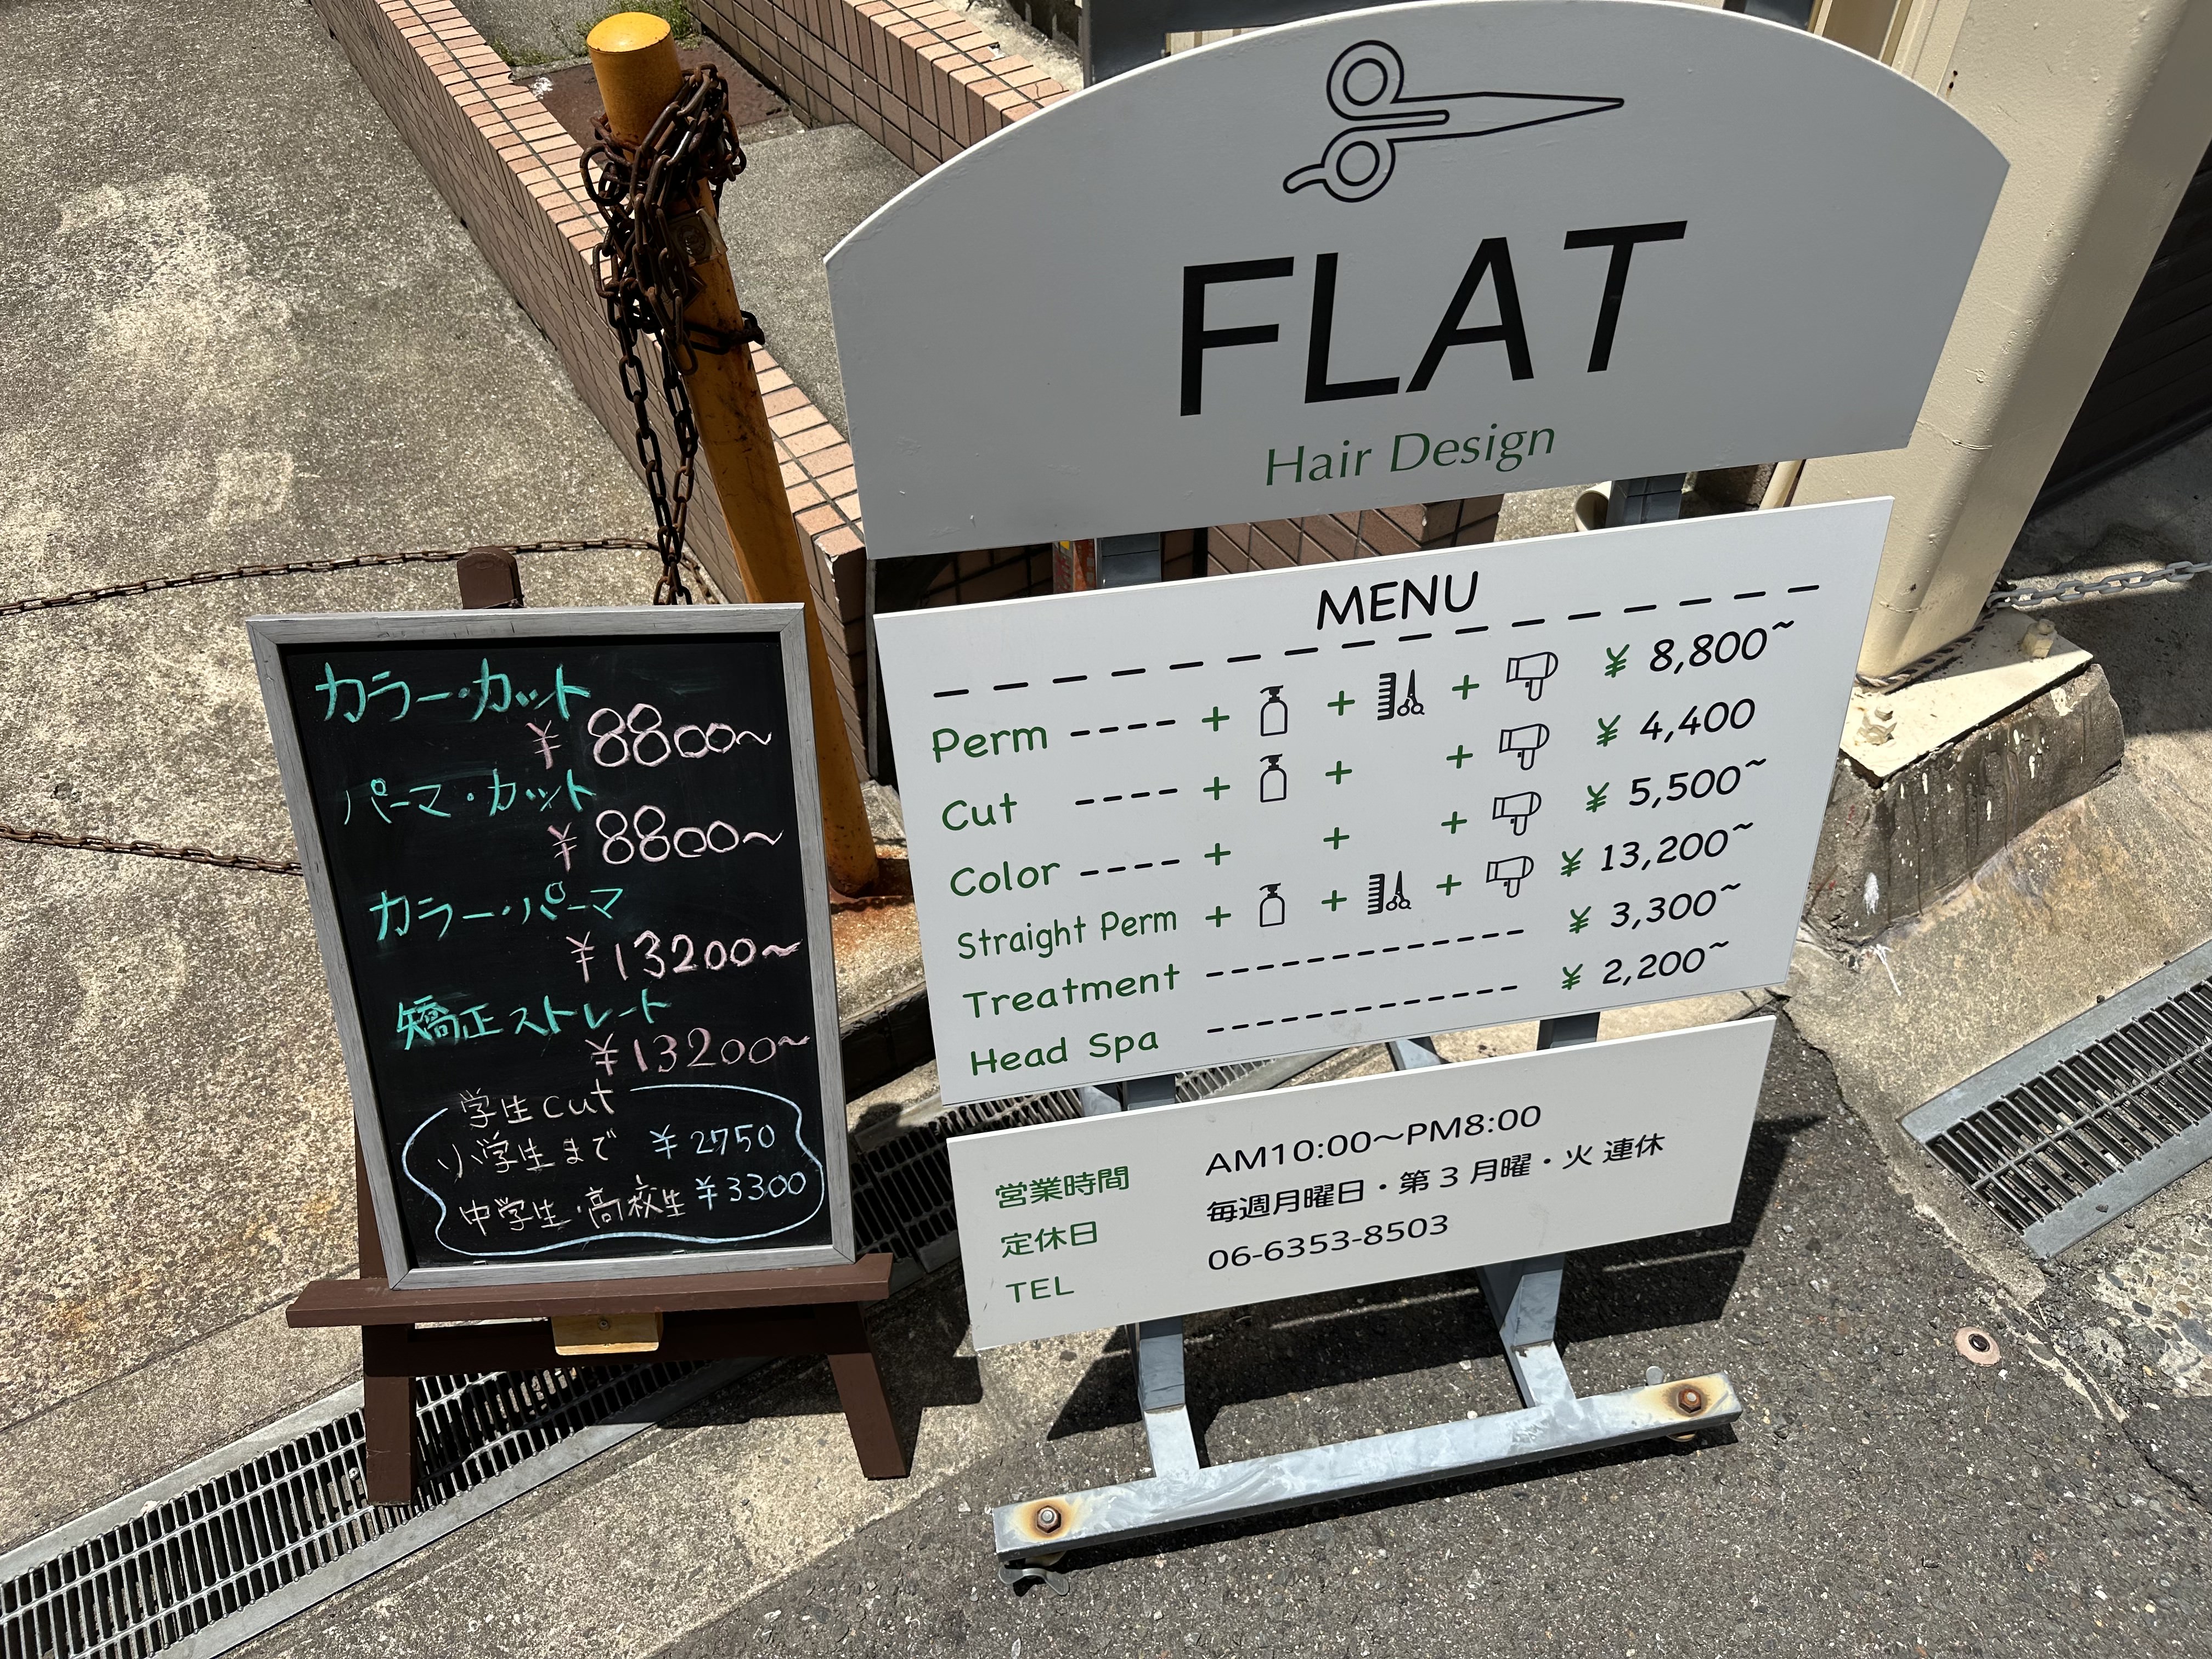 カラー・カット
¥8800~
パーマ・カット
¥8800~
カラー・パーマ
¥13200~
矯正ストレート
¥13200~
学生cut
小学生まで ¥2750
中学生・高校生 ¥3300
FLAT
Hair Design
MENU
Perm ---- + + + ¥ 8,800~
Cut ---- + + + ¥ 4,400
Color ---- + + + ¥ 5,500~
Straight Perm + + + ¥ 13,200~
Treatment ------------- ¥ 3,300~
Head Spa ------------- ¥ 2,200~
営業時間 AM10:00～PM8:00
定休日 毎週月曜日・第3月曜・火 連休
TEL 06-6353-8503